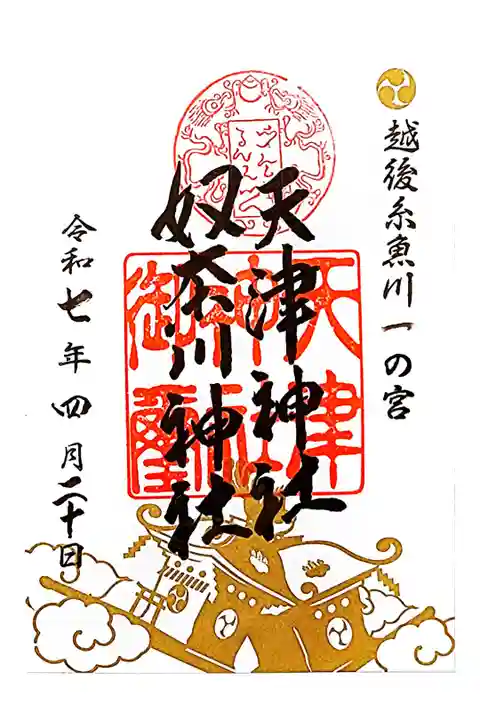 越後糸魚川一の宮
天津神社
奴奈川神社
令和七年四月二十日
天津神社御璽